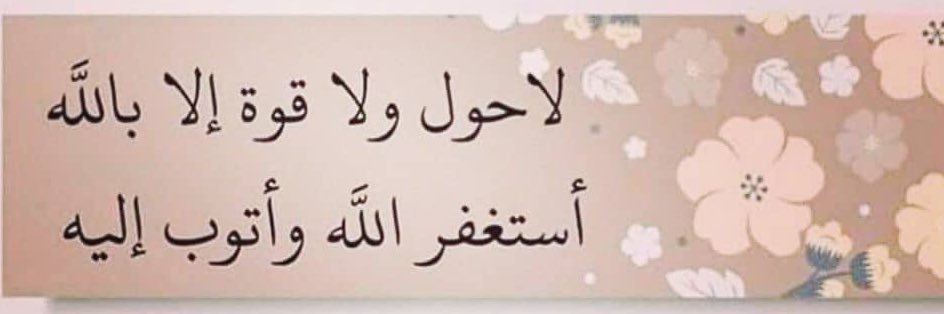 لاحول ولا قوة إلا بالله
أستغفر الله وأتوب إليه